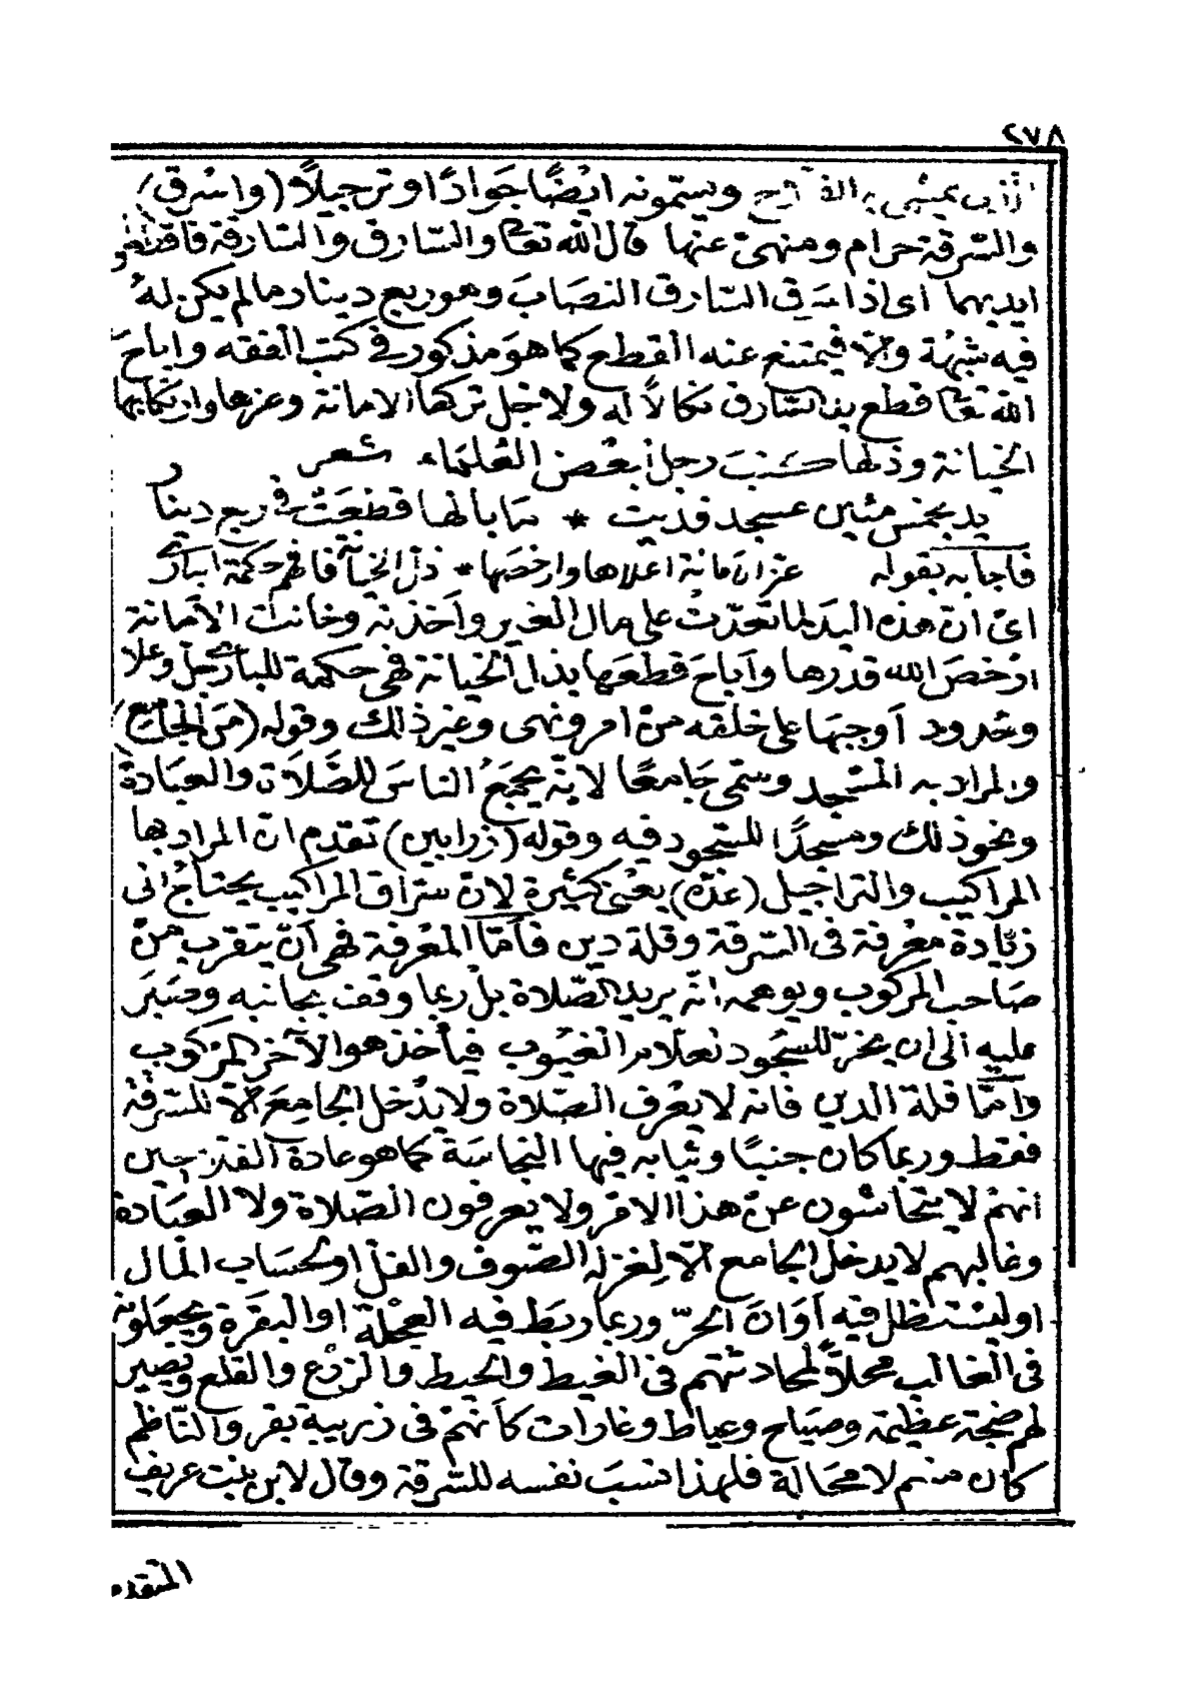 ٢٧٨
الذى يمشى به الفلاح ويسمونه ايضًا جوادًا وترجيلاً (واسْرق)
والسّرقة حرام ومنهىّ عنها قال الله تعالى والسّارق والسّارقة فاقطعوا
ايديهما اى اذا سرق السّارق النصَابَ وهو ربع دينار مالم يكن لهُ
فيه شبْهة والاّ فيمتنع عنه القطع كما هوَ مذكور فى كتب الفقه واباحَ
الله تعالى قطع يد السّارق نكالاً له ولاجْل تركها الامانة وعزها وارتكابها
الخيانة وذلها كتبَ رجل لبعْض العُلمَاء شعر
يد بخمْس مئين عسجد فديت * ما بالها قطعَتْ فى ربع دينار
فاجابه بقوله عز الامانة اعلاها وارخصَها * ذل الخيانة فافهم حكمة البارى
اىْ انّ هذه اليد لما تعدّت على مال الغير واَخذته وخانت الاَمانة
ارْخصَ الله قدرها واَباحَ قطعَها بذل الخيانة فهى حكمة للبارى جلّ وعلا
وحدود اَوجبَها على خلقه منْ امر ونهى وغير ذلك وقوله (منَ الجامع)
والمراد به المسْجد وسمّى جَامعًا لانّه يجمَعُ الناسَ للصَّلاَة والعبَادة
ونحو ذلك ومسجدًا للسّجود فيه وقوله (زرابين) تقدم ان المراد بها
المراكيب والتراجيل (عدّه) يعْنى كثيرة لانّ سرّاق المراكيب يحتاجُ الى
زيَادة معْرفة فى السّرقة وقلة دين فاَمّا المعْرفة فهى اَنْ يتقرب منْ
صَاحب المركوب ويوهمه انّه يريد الصّلاة بلْ ربما وقف بجانبه وصَبَر
عليه الى ان يخرّ للسّجود لعلاّم الغيُوب فيأخذ هو الآخر المركوب
وامّا قلة الدين فانه لا يعْرف الصّلاة ولا يدْخل الجامعَ الاّ للسّرقة
فقط وربما كان جنبًا وثيابه فيها النجَاسَة كما هو عادة الفلاحين
انهمْ لا يتحاشون عنْ هذا الامْر ولا يعرفون الصّلاة ولا العبَادة
وغالبهم لا يدخل الجامع الاّ لغزل الصّوف والفلْ او لحسَاب المال
او ليسْتظل فيه اَوَانَ الحرّ وربما ربَط فيه العجْلة او البقَرة ويجعلونه
فى الغالب محلاًّ لمحادثتهم فى الغيط والحيط والزرْع والقلع ويصير
لهم ضجّة عظيمَة وصيَاح وعياط وغارات كاَنهمْ فى زريبة بقر والنّاظم
كان منهم لا محَالة فلهذا نسَبَ نفسه للسّرقة وقال لابن بنت عريف
المتقدم